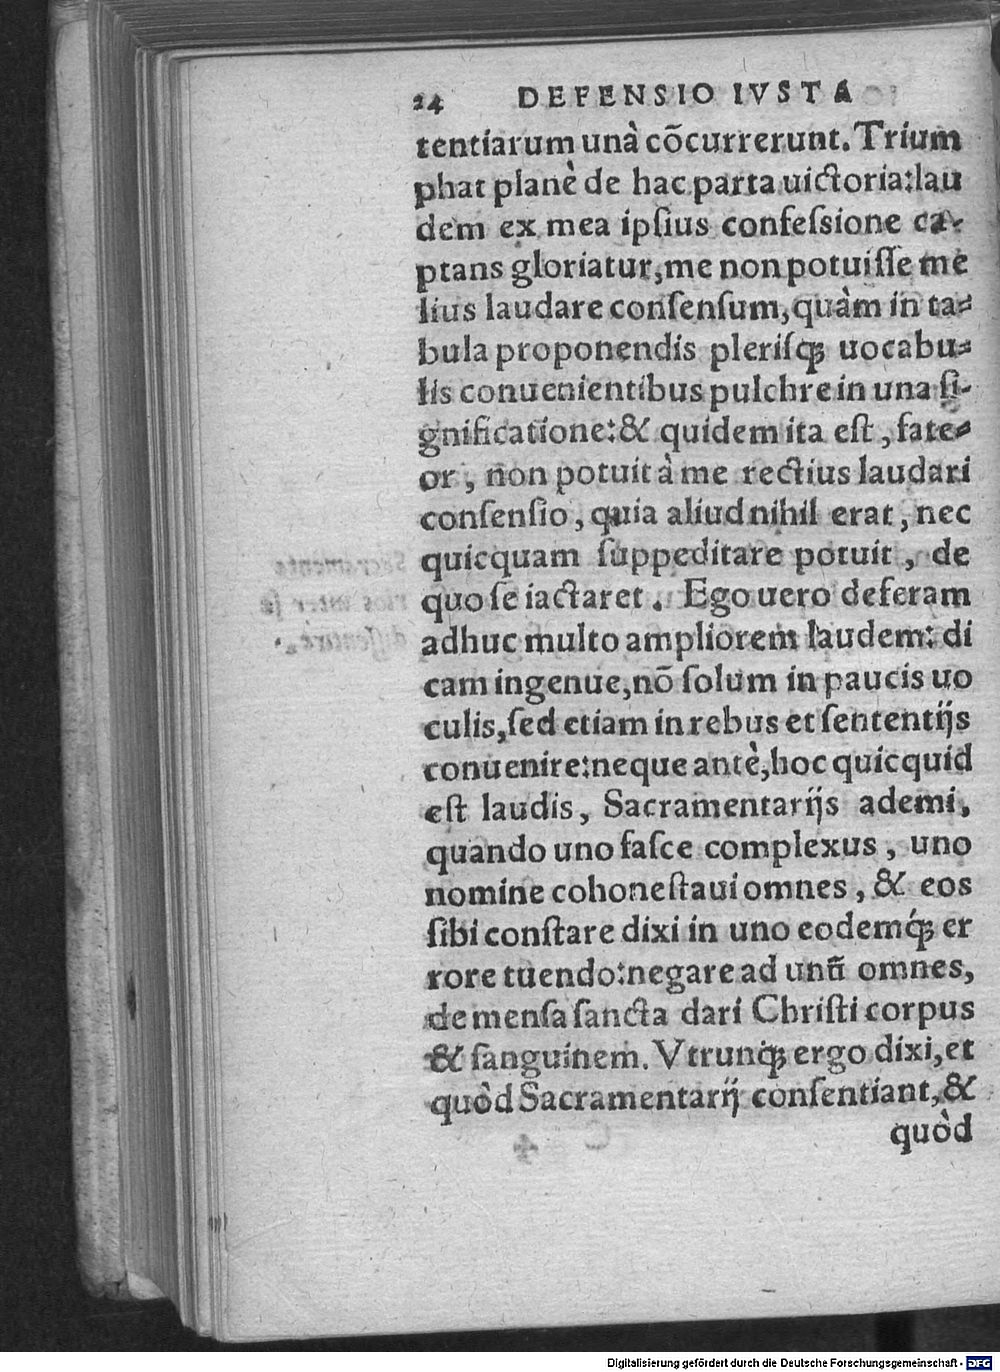 24 DEFENSIO IVSTA
tentiarum unà cõcurrerunt. Trium
phat planè de hac parta uictoria:lau
dem ex mea ipſius confeſsione ca-
ptans gloriatur,me non potuiſſe me
lius laudare conſenſum,quàm in ta-
bula proponendis pleriſq́; uocabu-
lis conuenientibus pulchre in una ſi-
gnificatione:& quidem ita eſt, fate-
or, non potuit à me rectius laudari
conſenſio, quia aliud nihil erat, nec
quicquam ſuppeditare potuit, de
quo ſe iactaret. Ego uero deferam
adhuc multo ampliorem laudem: di
cam ingenue,nõ ſolum in paucis uo
culis,ſed etiam in rebus et ſententijs
conuenire:neque antè,hoc quicquid
eſt laudis, Sacramentarijs ademi,
quando uno faſce complexus, uno
nomine cohoneſtaui omnes, & eos
ſibi conſtare dixi in uno eodemq́; er
rore tuendo:negare ad unũ omnes,
de menſa ſancta dari Chriſti corpus
& ſanguinem. Vtrunq; ergo dixi,et
quòd Sacramentarij conſentiant,&
quòd
Digitalisierung gefördert durch die Deutsche Forschungsgemeinschaft - DFG